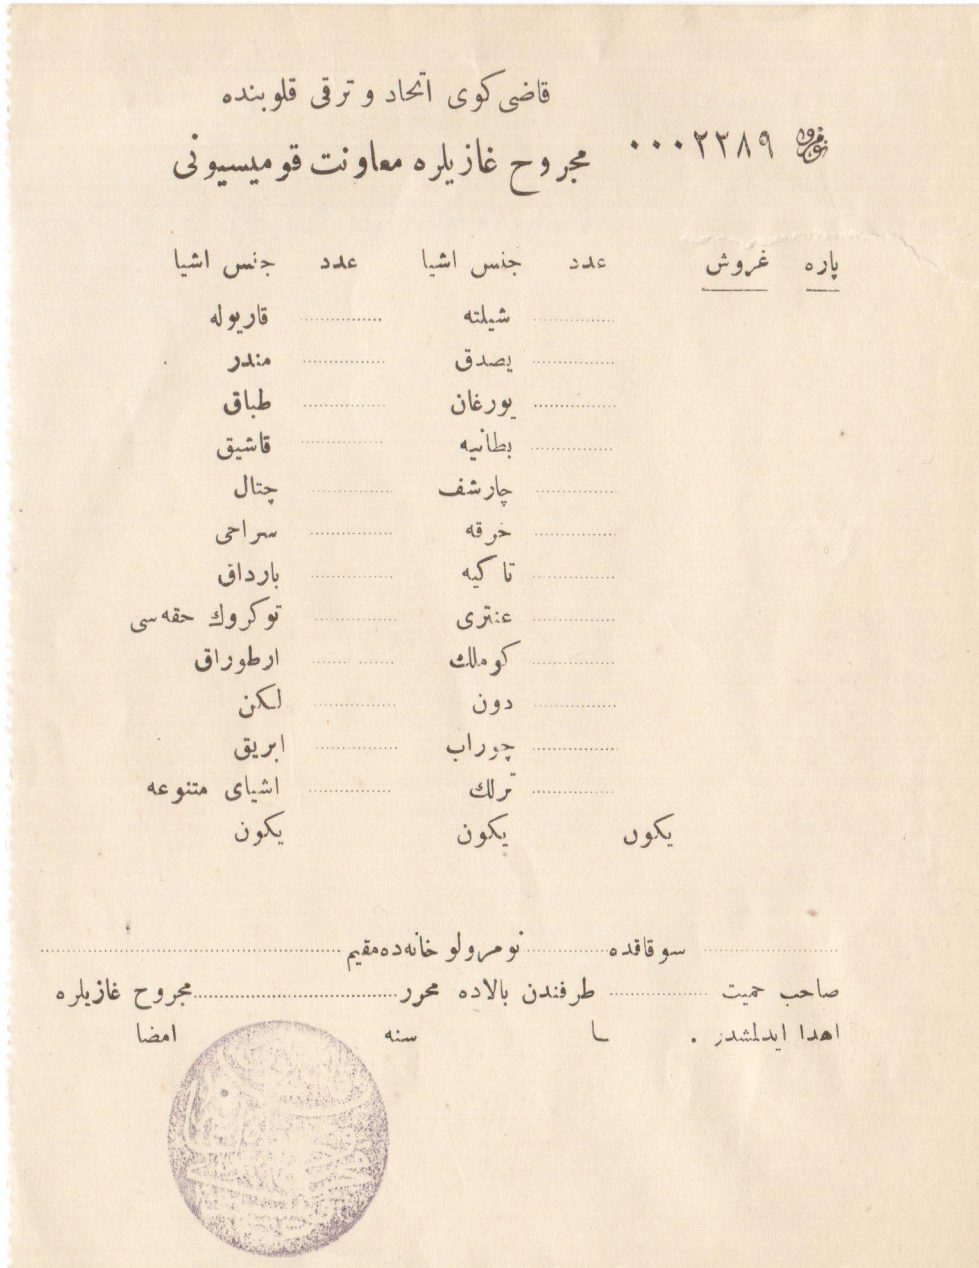 قاضی کوی اتحاد و ترقی قلوبنده
نومرو ٠٠٠٢٢٨٩
مجروح غازیلره معاونت قومیسیونی
پاره غروش عدد جنس اشیا عدد جنس اشیا
شیلته قاریوله
یصدق مندر
یورغان طباق
بطانیه قاشیق
چارشف چتال
خرقه سراحی
تاکیه بارداق
عنتری توکروك حقه‌سی
کوملك ارطوراق
دون لکن
چوراب ابریق
ترلك اشیای متنوعه
یکون یکون یکون
سوقاقده نومرولو خانه‌ده مقیم
صاحب حمیت طرفندن بالاده محرر مجروح غازیلره
اهدا ایدلمشدر . سنه امضا